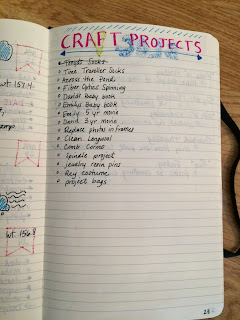 CRAFT PROJECTS
Time Traveler Socks
Across the Pond
Fiber Optics Spinning
David baby book
Emily baby book
Emily 5 yr movie
David 3 yr movie
Replace photos in frames
Clean Longwool
Comb Cormo
Spindle project
jewelry resin pins
Rey costume
project bags
wt. 157.4
wt. 156.8